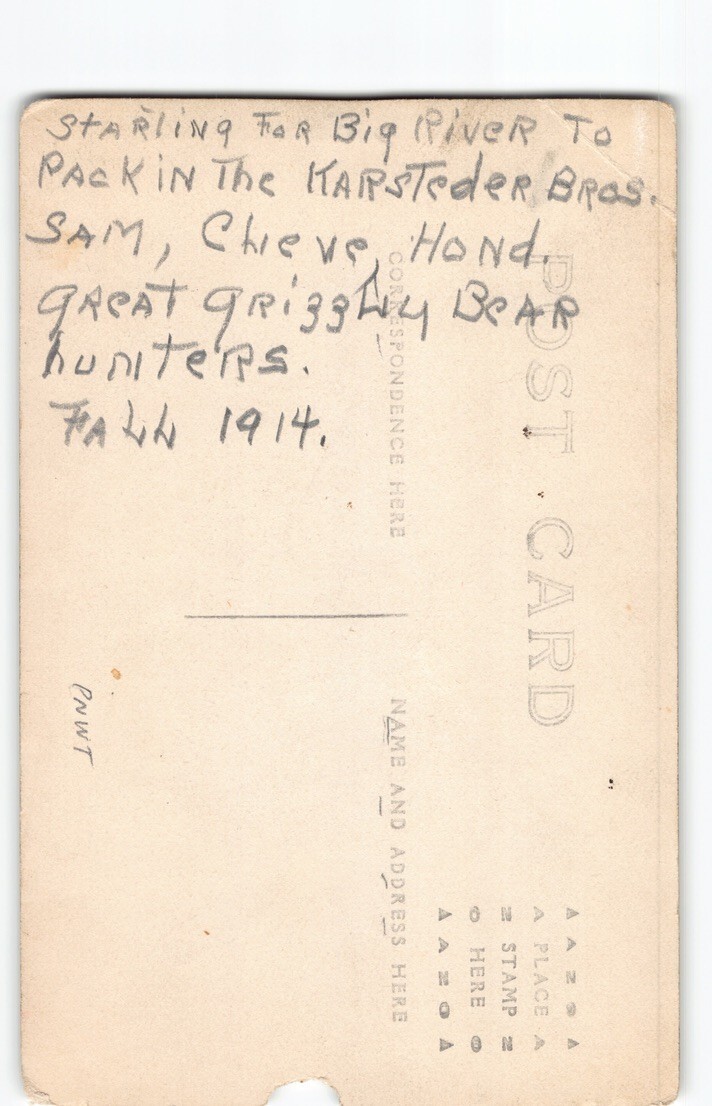 STARTING FOR BIG RIVER TO
PACK IN THE KARSTEDER BROS.
SAM, CLEVE, HOND.
GREAT GRIZZLY BEAR
HUNTERS.
FALL 1914.
POST CARD
CORRESPONDENCE HERE
NAME AND ADDRESS HERE
PLACE
STAMP
HERE
PNWT